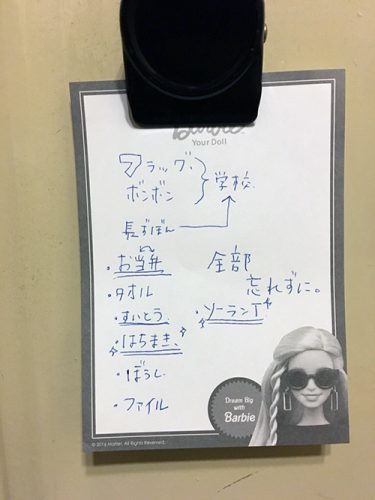 Barbie
Your Doll
フラッグ
ボンボン
学校
長ずぼん
・お弁当
・タオル
・すいとう
・はちまき、
・ぼうし
・ファイル
全部
忘れずに。
・ソーランT
Dream Big
with
Barbie
© 2016 Mattel. All Rights Reserved.